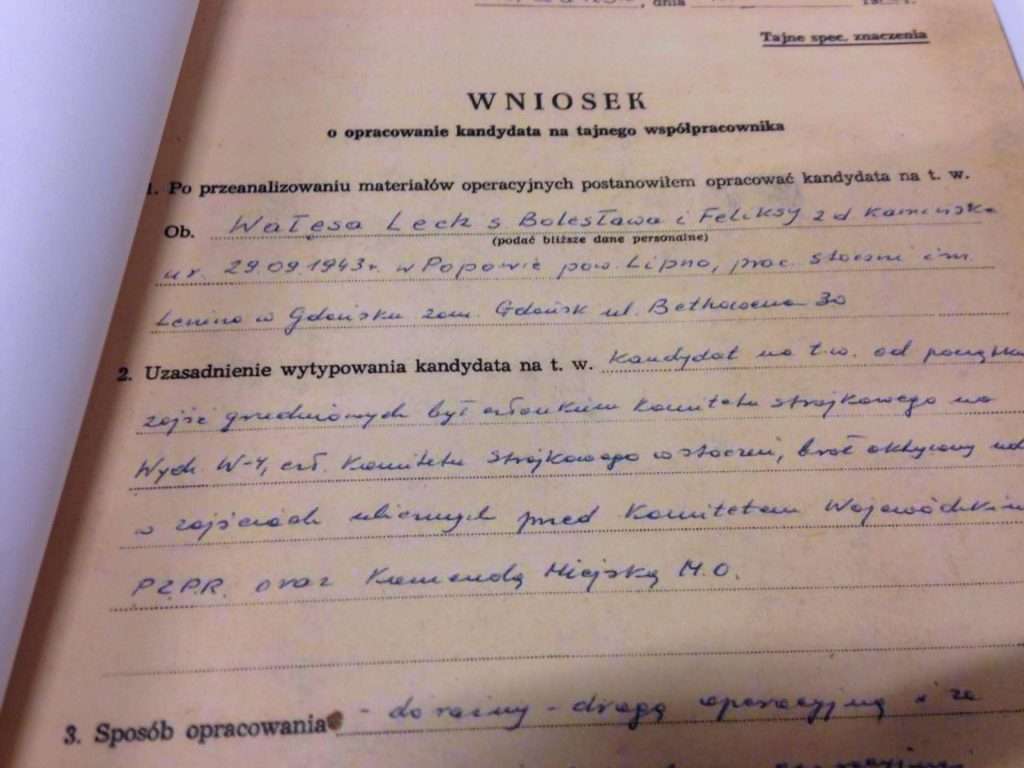 dnia
Tajne spec. znaczenia
WNIOSEK
o opracowanie kandydata na tajnego współpracownika
1. Po przeanalizowaniu materiałów operacyjnych postanowiłem opracować kandydata na t. w.
Ob. Wałęsa Lech s Bolesława i Feliksy z d. Kamińska
(podać bliższe dane personalne)
ur. 29.09.1943 r. w Popowie pow. Lipno, prac. stoczni im.
Lenina w Gdańsku zam. Gdańsk ul. Bethowena 30
2. Uzasadnienie wytypowania kandydata na t. w. Kandydat na t.w. od początku
zajść grudniowych był członkiem Komitetu strajkowego na
Wydz. W-4, czł. Komitetu Strajkowego w stoczni, brał aktywny
w zajściach ulicznych przed Komitetem Wojewódzkim
PZPR. oraz Komendą Miejską M.O.
3. Sposób opracowania - doraźny - drogą operacyjną i za